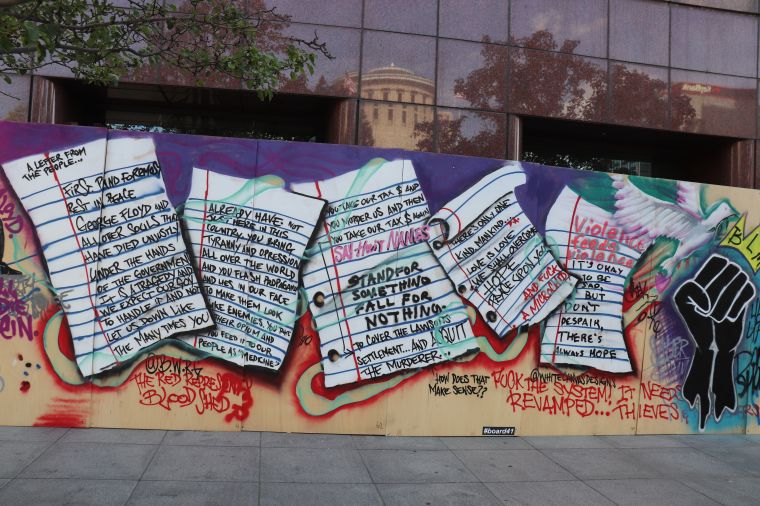 A LETTER FROM
THE PEOPLE...
FIRST AND FOREMOST
REST IN PEACE
GEORGE FLOYD AND
ALL OTHER SOULS THAT
HAVE DIED UNJUSTLY
UNDER THE HANDS
OF THE GOVERNMENT
IT'S A TRAGEDY AND
WE EXPECT OUR GOV
TO HANDLE IT AND NOT
LET US DOWN LIKE
THE MANY TIMES YOU
ALREADY HAVE. NOT
JUST HERE IN THIS
COUNTRY. YOU BRING
TYRANNY AND OPRESSION
ALL OVER THE WORLD
AND YOU FLASH PROPAGANDA
AND LIES IN OUR FACE
TO MAKE THEM LOOK
LIKE ENEMIES. YOU
THEIR OPIUM AND
YOU FEED IT TO OUR
PEOPLE AS "MEDICINE"
YOU TAKE OUR TAX $ AND
YOU MURDER US AND THEN
YOU TAKE OUR TAX $ AGAIN
SAY THEIR NAMES
STAND FOR
SOMETHING
FALL FOR
NOTHING.
TO COVER THE LAWSUITS
SETTLEMENT... AND ACQUIT
THE MURDERER.
THERE'S ONLY ONE
KIND MANKIND
LOVE IS LOVE
WE SHALL OVERCOME
PEACE UPON YOU
AND FUCK
Violence
feeds
violence
IT'S OKAY
TO BE
SAD,
BUT
DON'T
DESPAIR,
THERE'S
ALWAYS HOPE
BLM
FLOYD
THE RED REPRESENTS
BLOOD SHED
HOW DOES THAT
MAKE SENSE??
FUCK THE SYSTEM! IT NEEDS
REVAMPED... THIEVES
#board41